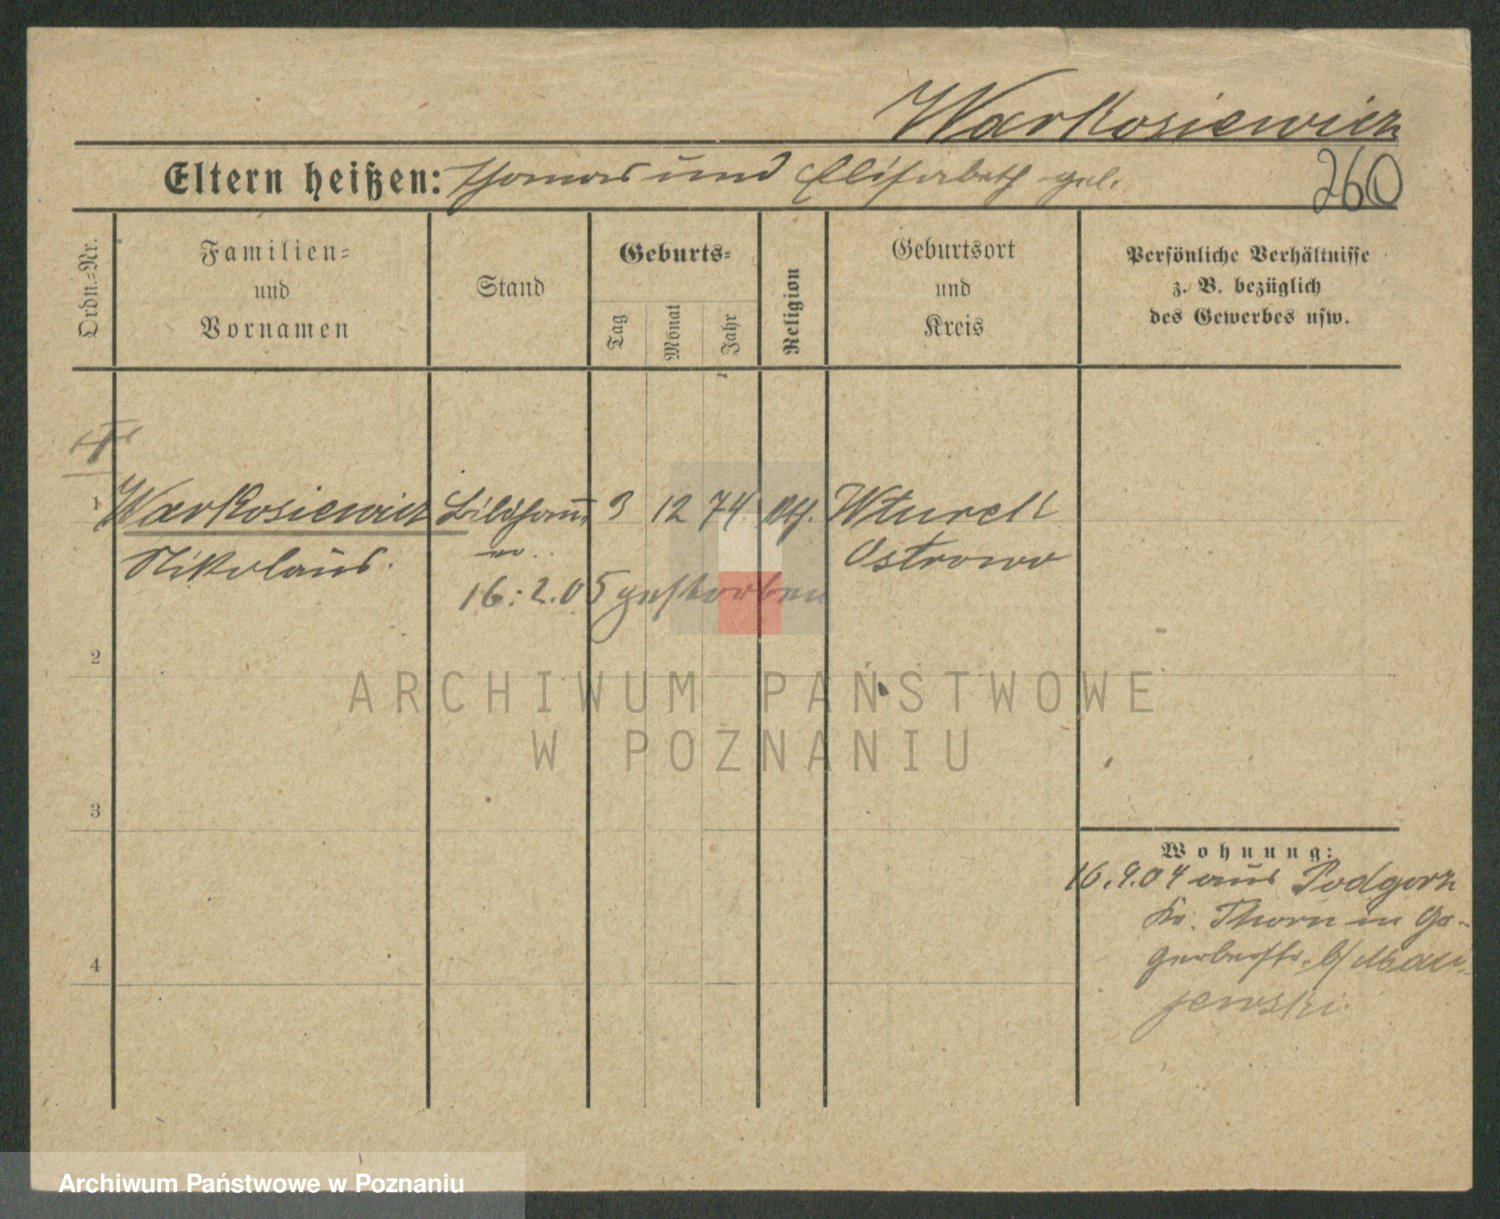 Warkosiewicz
Eltern heißen: Thomas und Elisabeth gel.
260
Ordn.-Nr.
Familien-
und
Vornamen
Stand
Geburts-
Tag
Monat
Jahr
Religion
Geburtsort
und
Kreis
Persönliche Verhältnisse
z. B. bezüglich
des Gewerbes usw.
1 Warkosiewicz Bildhau 3 12 74 kth. Wturek
Nikolaus. er. Ostrowo
16.2.05 gestorben
2
3
4
ARCHIWUM PAŃSTWOWE
W POZNANIU
Wohnung:
16.9.04 aus Podgorz
Kr. Thorn in
Gerberstr. b/
jewski.
Archiwum Państwowe w Poznaniu